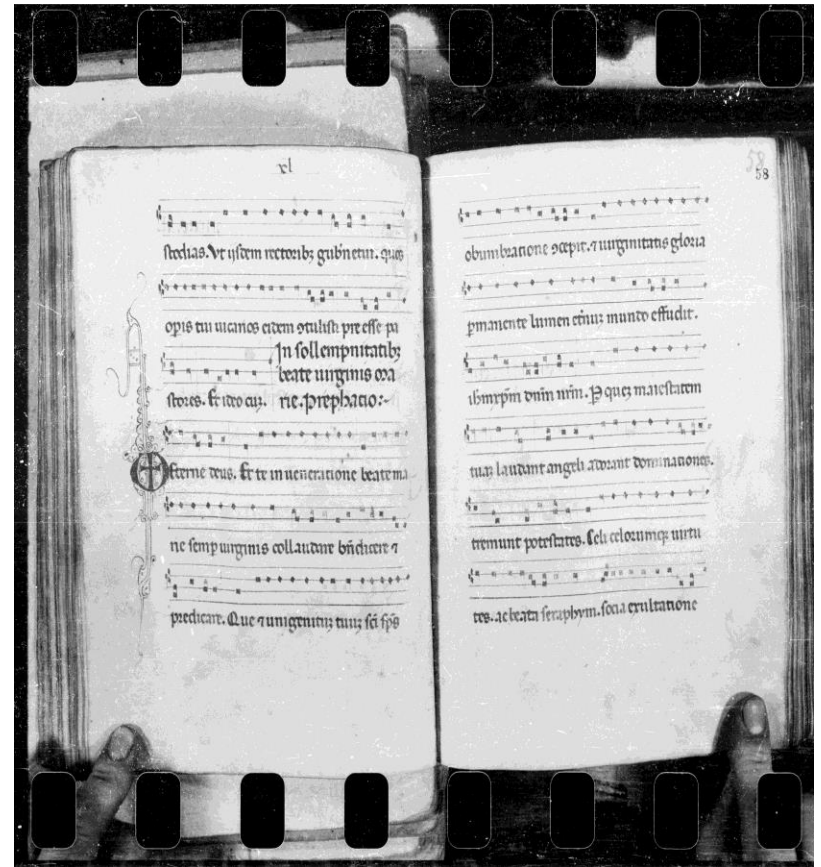 xl
stodias. Vt ijsdem rectoribꝫ gub̄netur. quos
opis tui uicarios eidem ꝯtulisti pre esse pa
In sollempnitatibꝫ
beate uirginis ma
stores. Et ideo cuꝫ. rie. Prephatio:~
Eterne deus. Et te in ueneratione beate ma
rie semp uirginis collaudare bn̄dicere ⁊
predicare. Que ⁊ unigenituꝫ tuuꝫ sc̄i sp̄s
58
58
obumbratione ꝯcepit. ⁊ uirginitatis gloria
ꝑmanente lumen et̄nuꝫ mundo effudit.
ih̄m xp̄m dn̄m nr̄m. P queꝫ maiestatem
tuaꝫ laudant angeli adorant dominationes.
tremunt potestates. Celi celorumqꝫ uirtu
tes. ac beata seraphym. socia exultatione